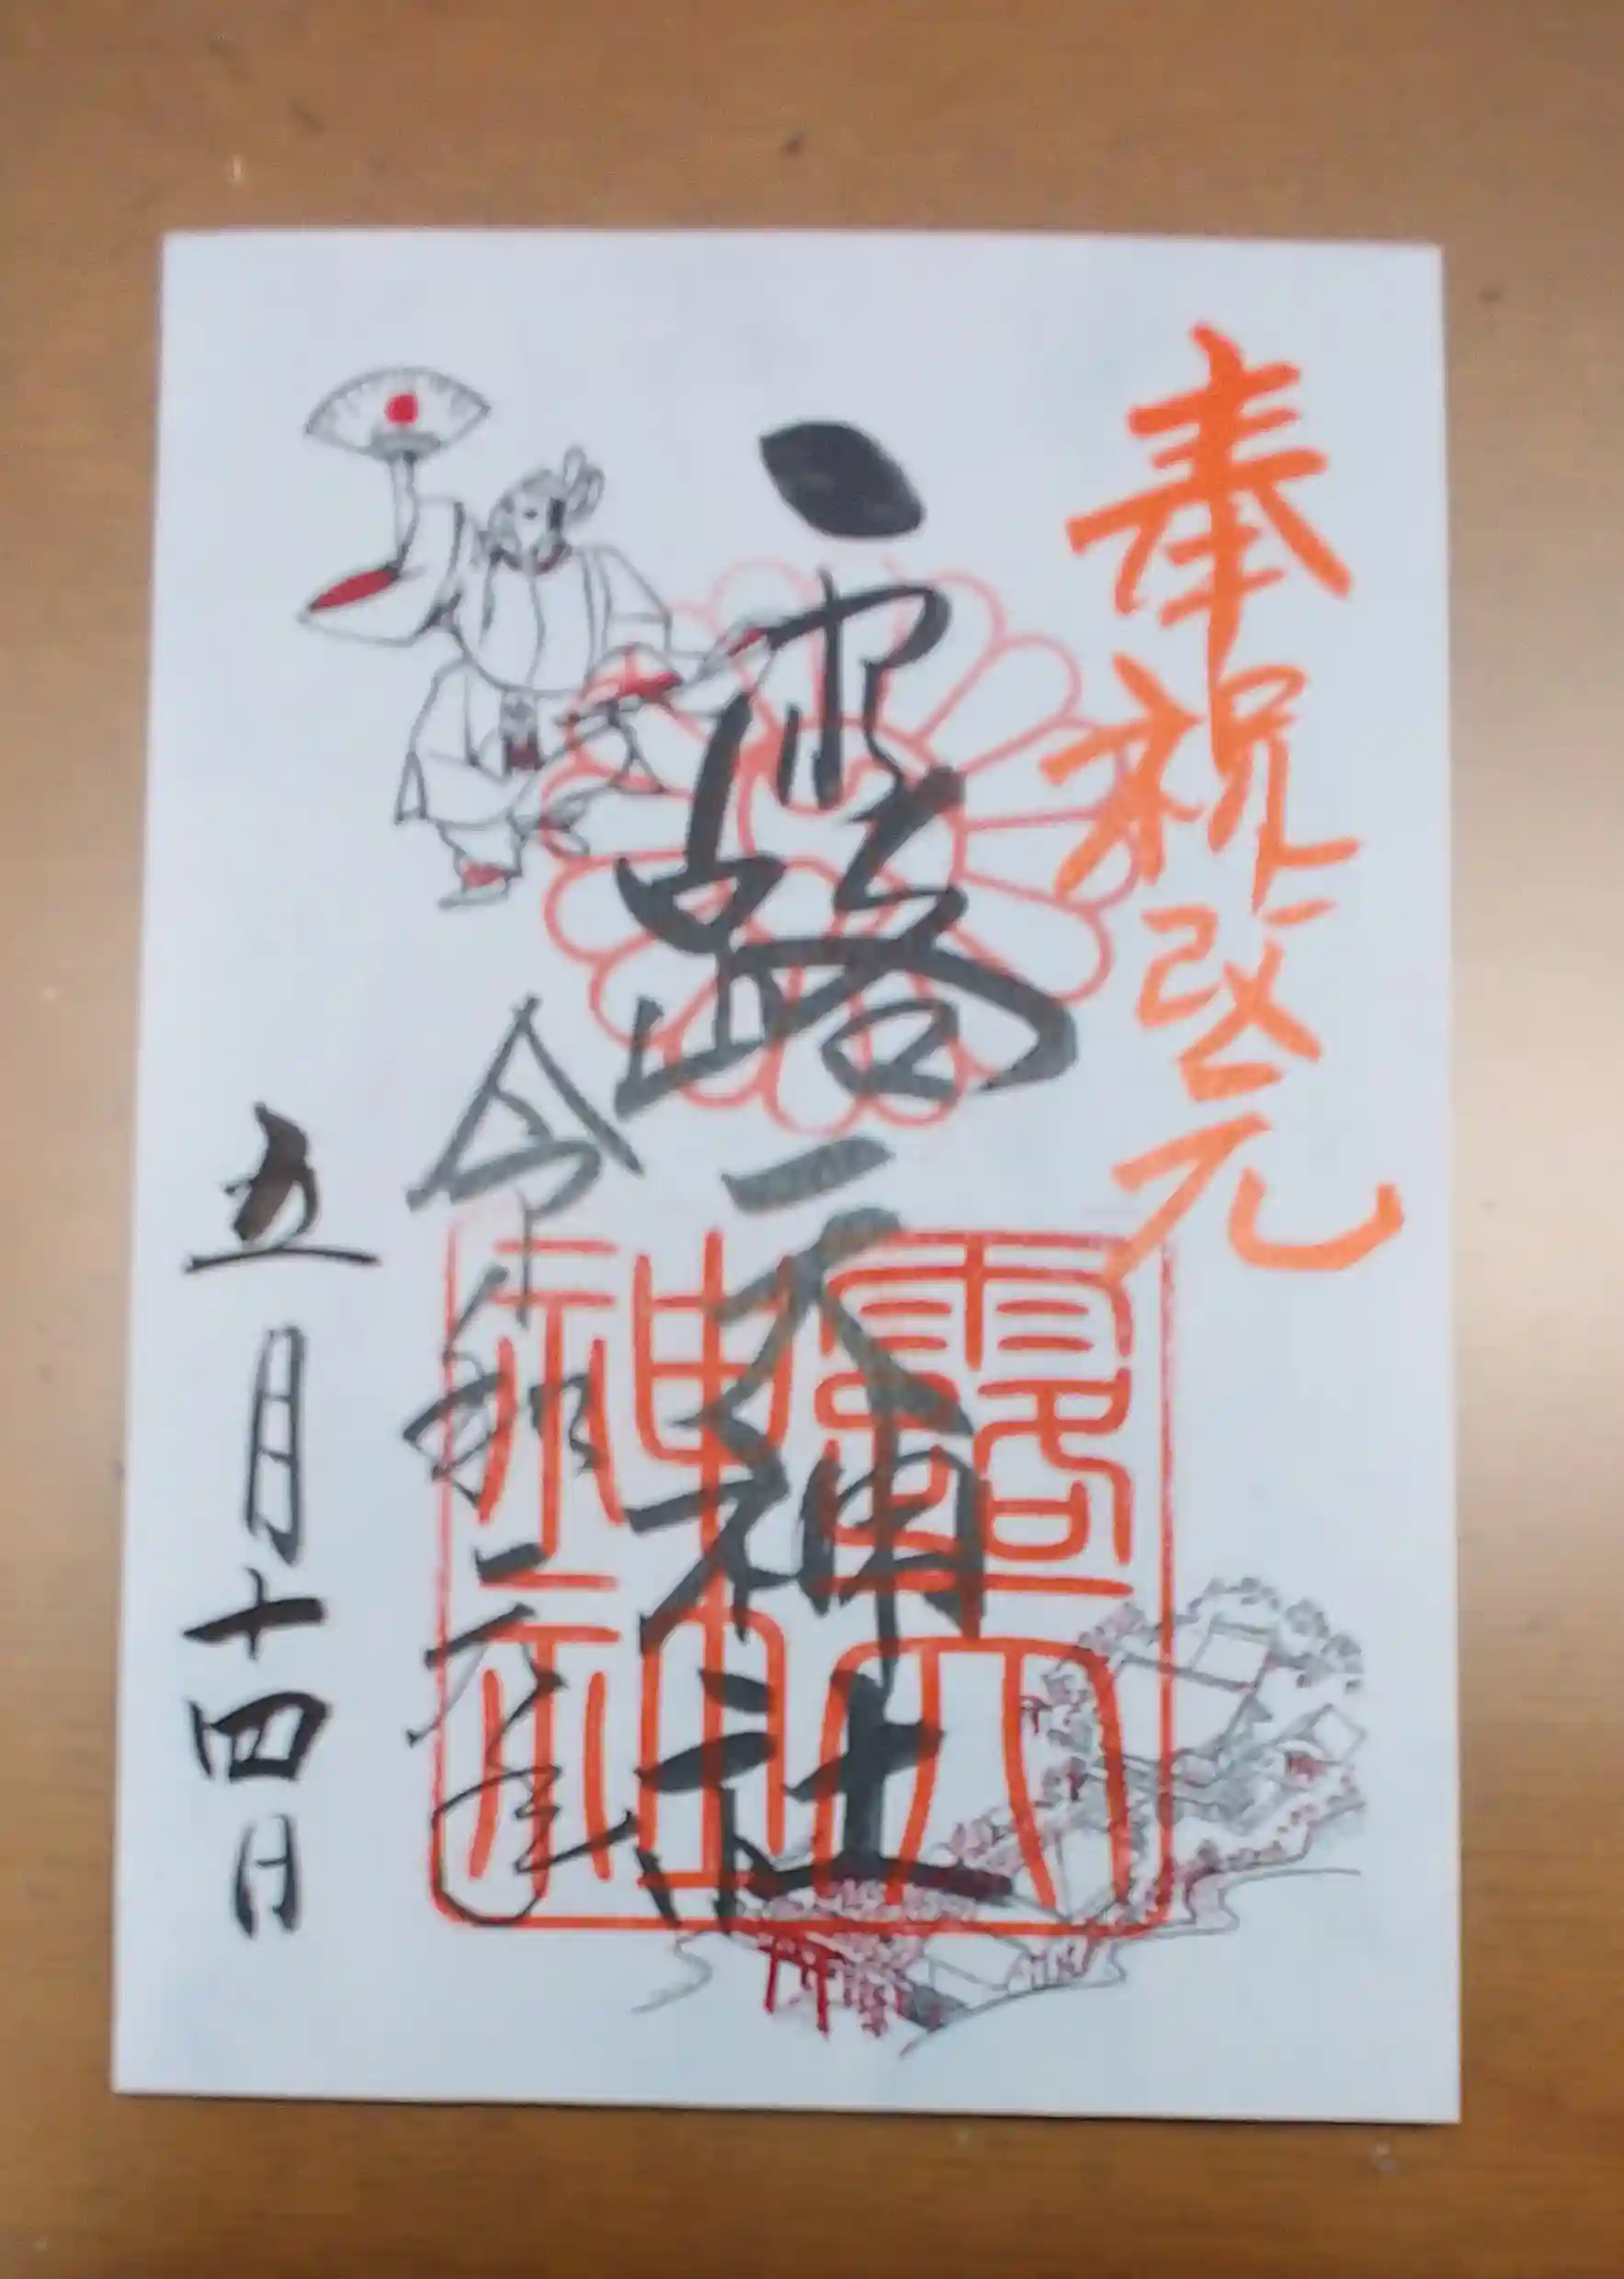 奉祝改元
露天神社
露天
神社
令和元年
五月十四日